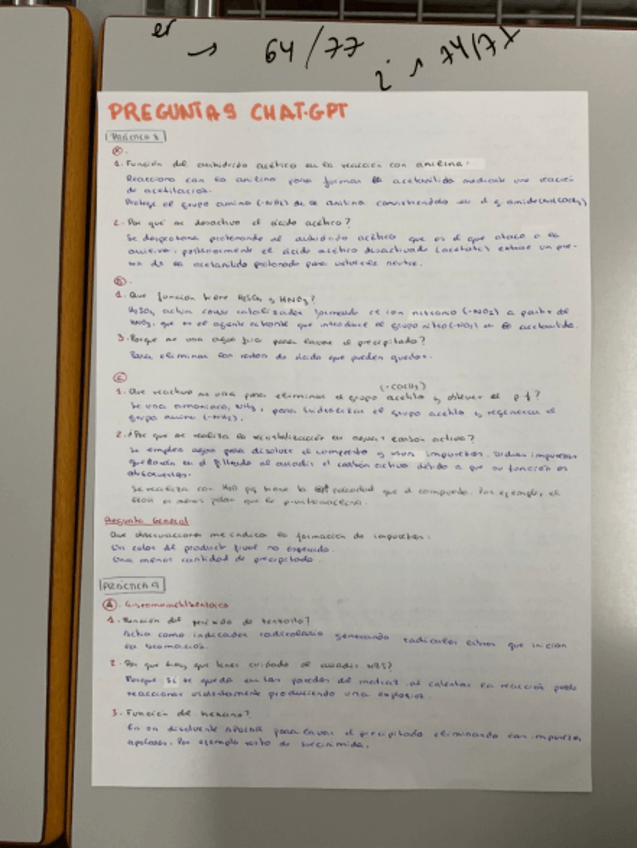 er → 64/77
PREGUNTAS CHAT-GPT
PRÁCTICA 8
A.
1. Función del anhídrido acético en la reacción con anilina:
Reacciona con la anilina para formar acetanilida mediante una reacción
de acetilación.
Protege el grupo amino (-NH2) de la anilina convirtiéndolo en
2. Por qué se desactiva el ácido acético?
Se desprotona protonando al anhídrido acético que es el que ataca a la
anilina, posteriormente el ácido acético desactivado (acetato) extrae un pro-
tón de la acetanilida protonada para volverla neutra.
B.
1. Que función tiene H2SO4 y HNO3?
H2SO4 actúa como catalizador formando el ion nitronio (-NO2) a partir de
HNO3, que es el agente que introduce el grupo nitro (-NO2) en la acetanilida.
3. Porque se usa agua fría para lavar el precipitado?
Para eliminar los restos de ácido que pueden quedar.
C
(-COCH3)
1. Que reactivo se usa para eliminar el grupo acetilo y obtener el p.f?
Se usa amoniaco, NH3, para hidrolizar el grupo acetilo y regenerar el
grupo amino (-NH2).
2. ¿Por que se realiza la recristalización en agua y carbón activo?
Se emplea agua para disolver el compuesto y otras impurezas. Dichas impurezas
quedarán en el filtrado al añadir el carbón activo debido a que su función es
absorberlas.
Se realiza con H2O pq tiene la polaridad que el compuesto. Por ejemplo, el
es menos polar que la p-nitroanilina.
Pregunta General
Que observaciones me indica la formación de impurezas:
Un color del producto final no esperado.
Una menor cantidad de precipitado.
PRÁCTICA 9
A.
1. Función del peróxido de benzoilo?
Actúa como indicador radicalario generando radicales libres que inician
la bromación.
2. Por que hay que tener cuidado al añadir NBS?
Porque si se queda en las paredes del matraz, al calentar la reacción puede
reaccionar violentamente produciendo una explosión.
3. Función del hexano?
Es un disolvente APOLAR para lavar el precipitado eliminando las impurezas
apolares. Por ejemplo resto de succinimida.